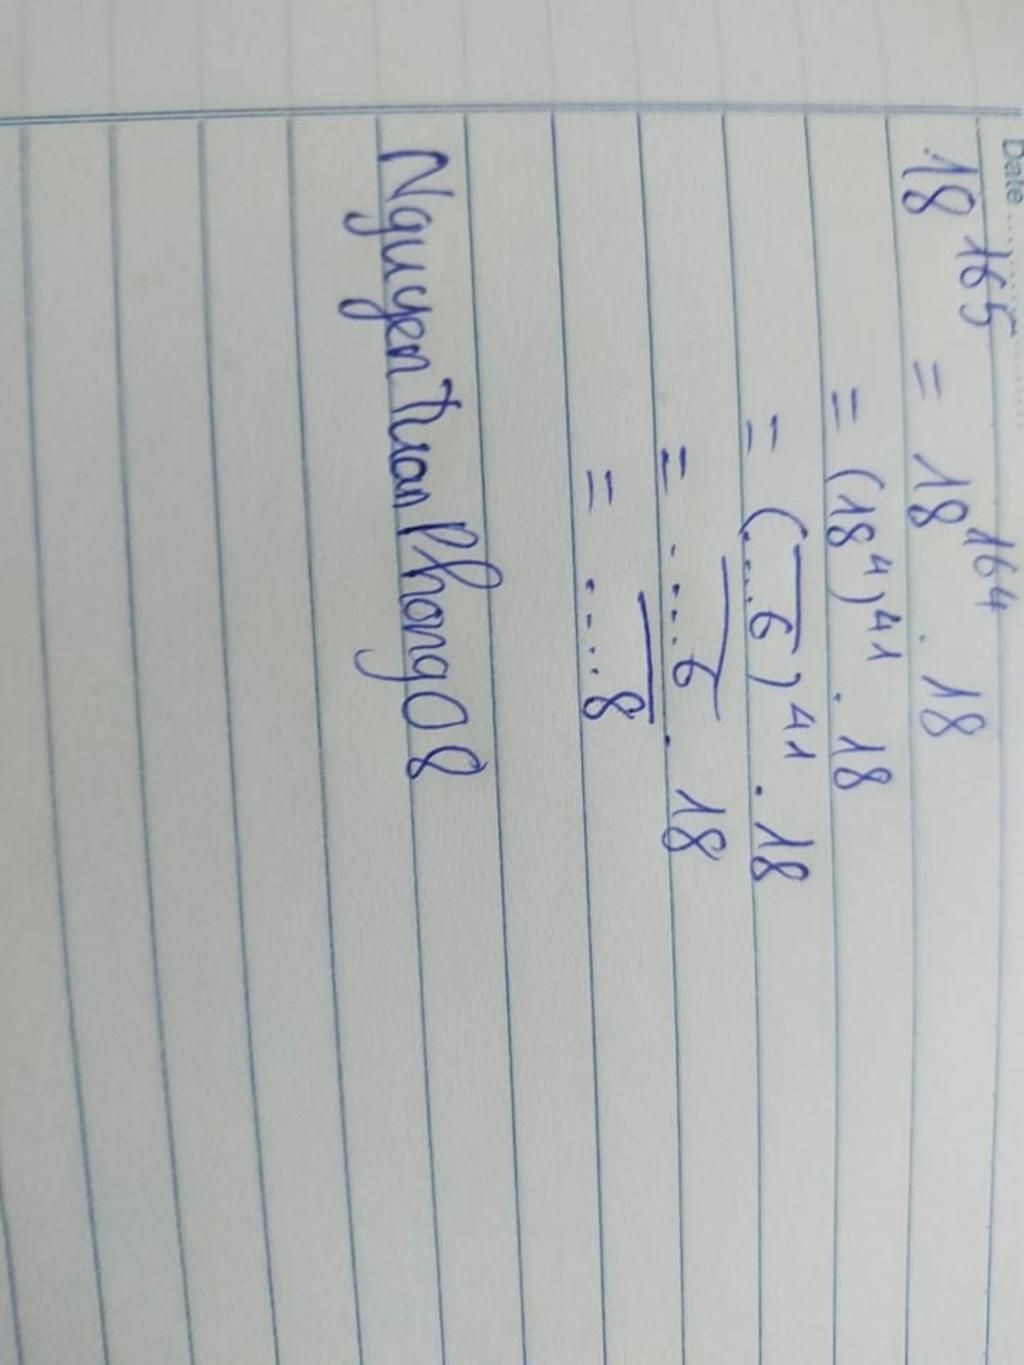 Date
18^165 = 18^164 . 18
= (18^4)^41 . 18
= (....6)^41 . 18
= ....6 . 18
= ....8
NguyenTuanPhong08